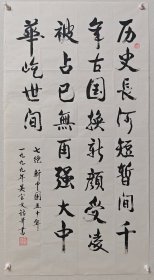 历史長河短暫间千
年古国换新颜受凌
被占已無再强大中
華屹世间
七绝 新中国五十年
一九九九年吴文诗并書